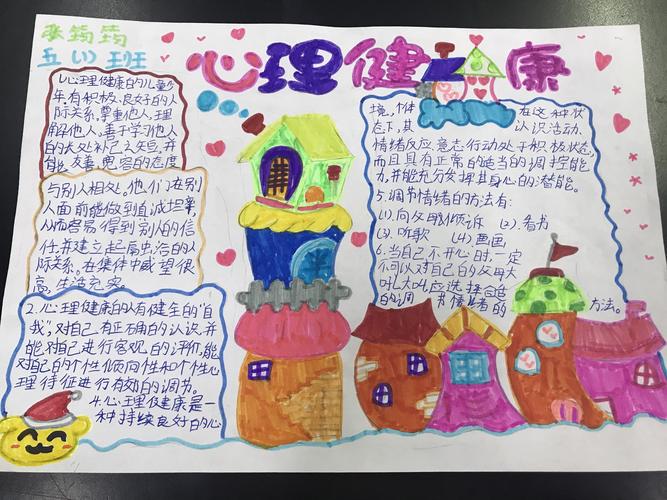 张筠筠
五（1）班
心理健康
1.心理健康的儿童少
年，有积极、良好的人
际关系，尊重他人、理
解他人，善于学习他人
的长处补己之短，并
能友善、宽容的态度
与别人相处。他们在别
人面前能做到真诚坦率，
从而容易得到别人的信
任并建立起融洽的人
际关系。在集体中威望很
高，生活充实
2.心理健康的人有健全的"自
我"，对自己有正确的认识，并
能对自己进行客观的评价，能
对自己的个性倾向性和个性心
理特征进行有效的调节。
4.心理健康是一
种持续良好的心
境，个体在这种状
态下，其认识活动、
情绪反应、意志行动处于积极状态，
而且具有正常的适当的调控能
力，并能充分发挥其身心的潜能。
5.调节情绪的方法有：
(1).向父母倾诉 (2).看书
(3).听歌 (4)画画
6.当自己不开心时，一定
不可以对自己的父母大
吼大叫，应选择合适
的调节情绪的方法。